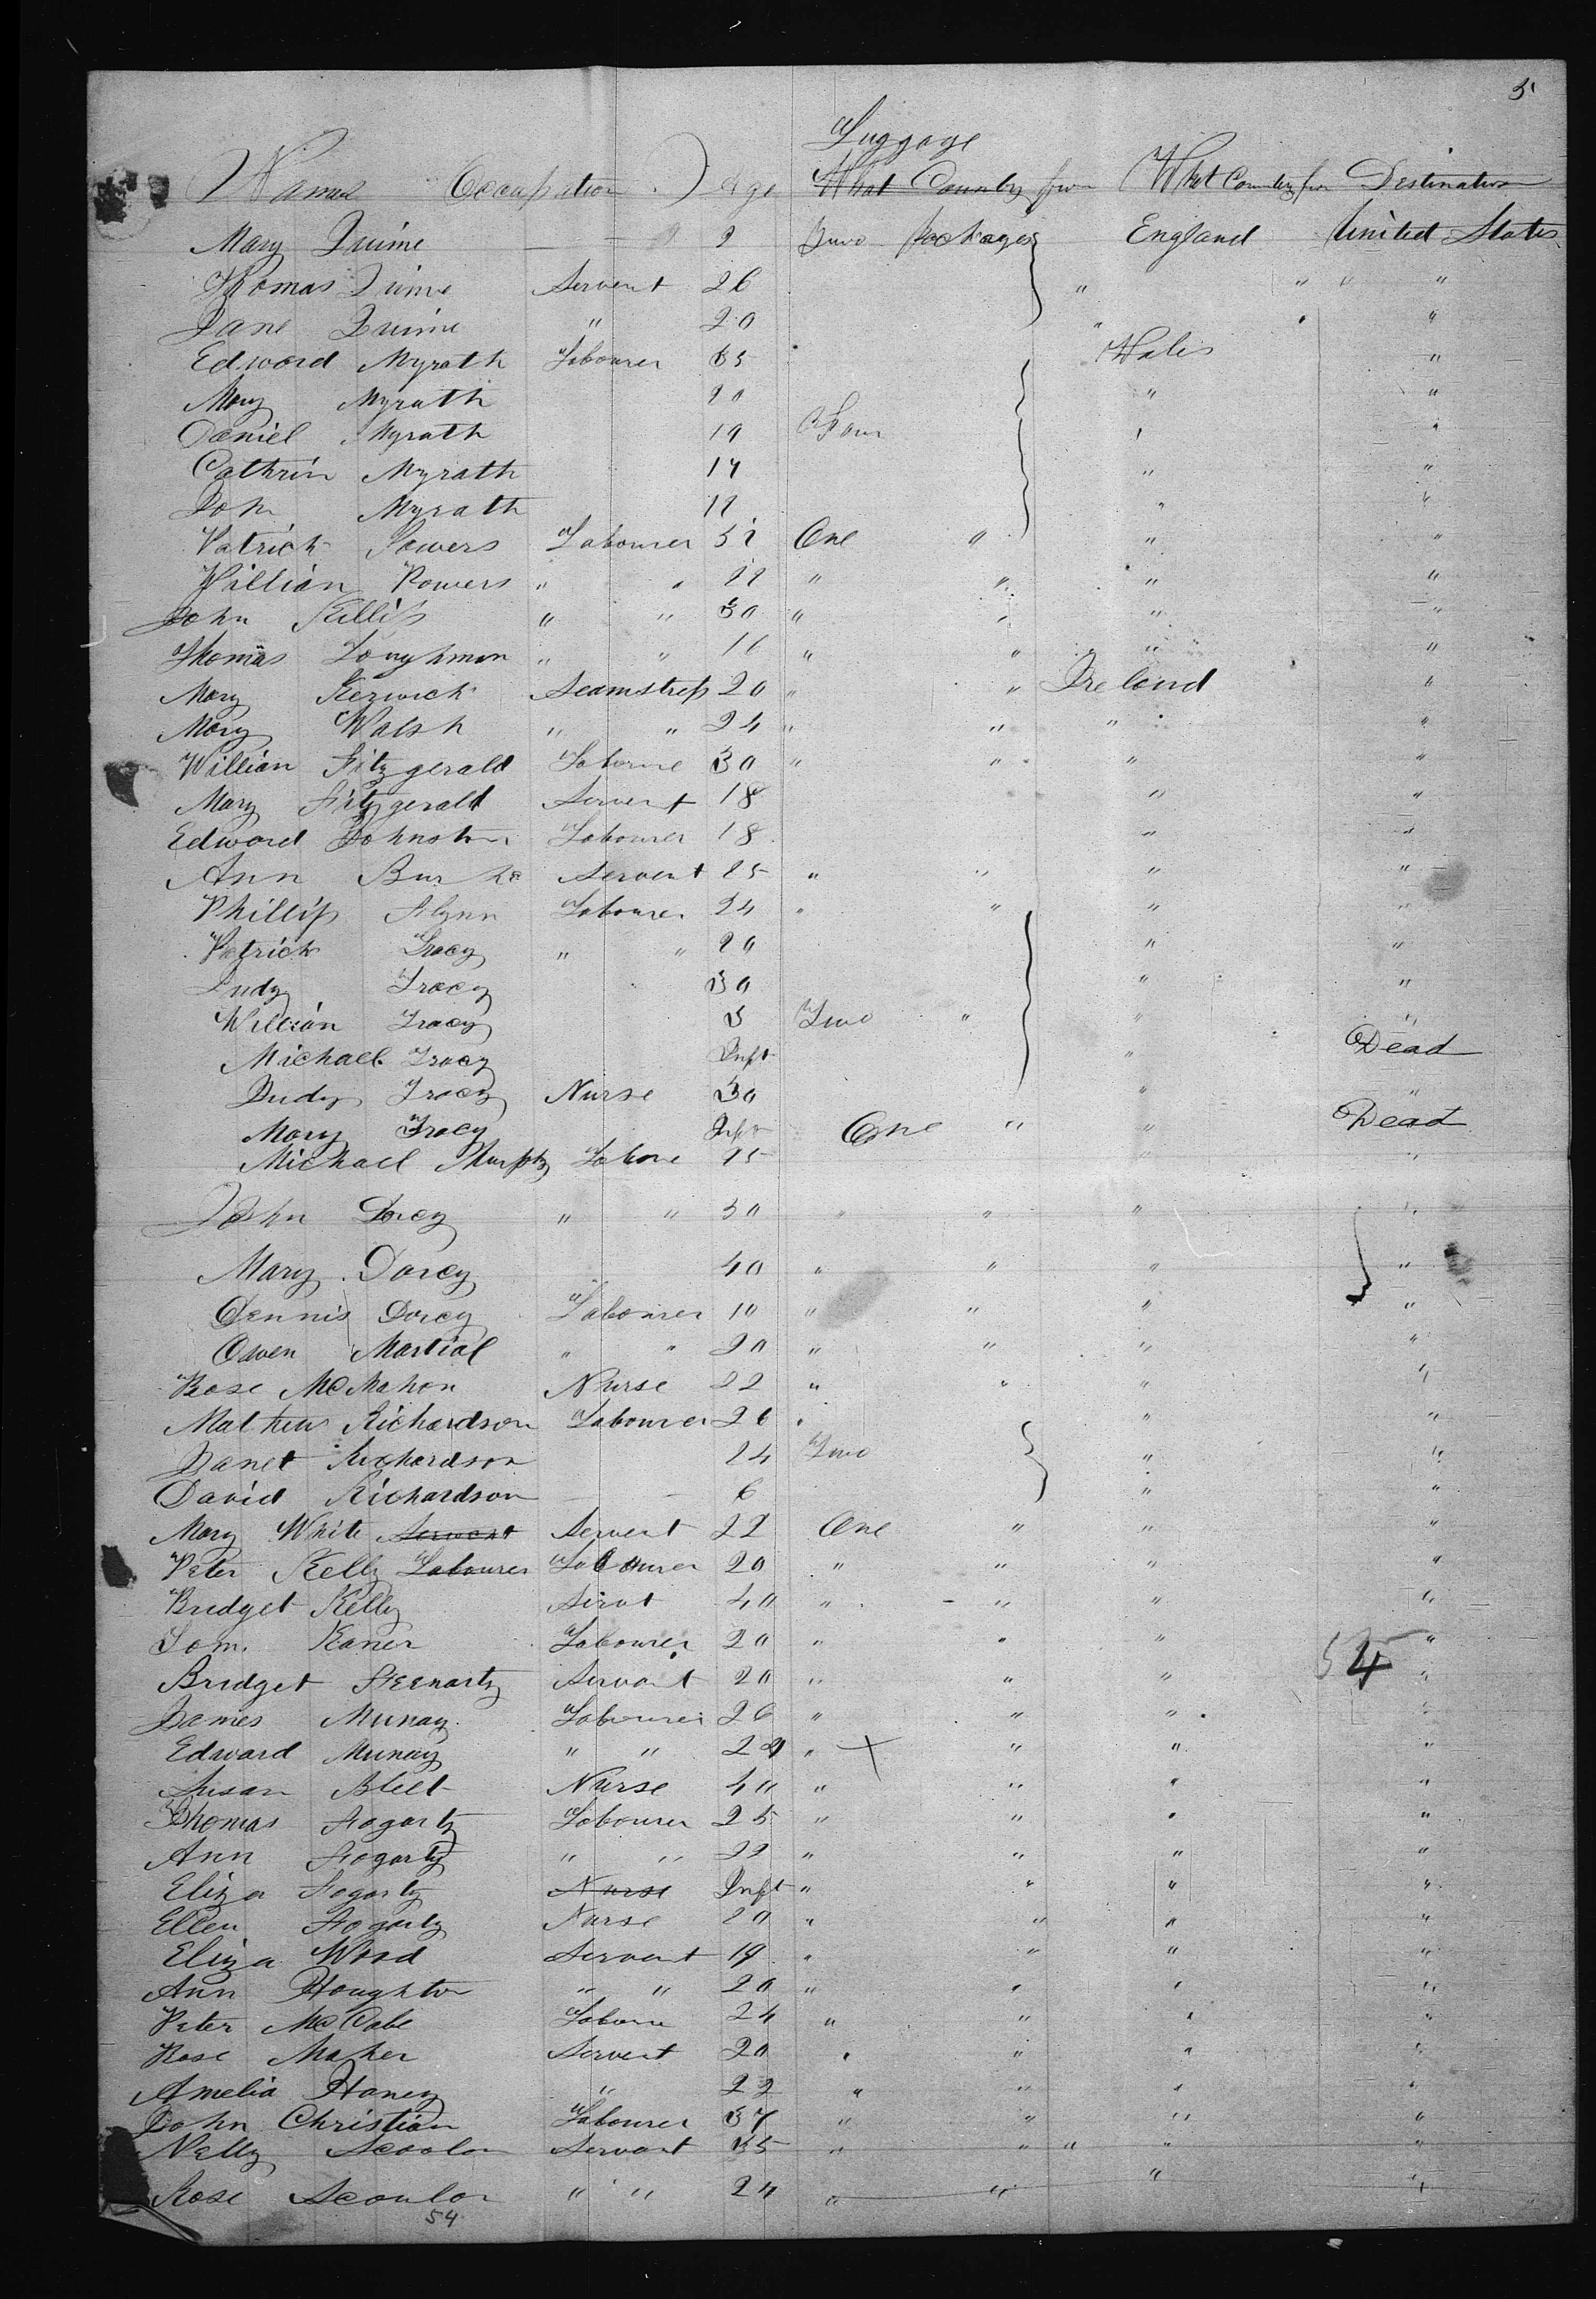 5
Luggage
Names Occupation Age What Country from What Country from Destination
Mary Quine — — 9 Two Packages England United States
Thomas Quine Servent 26 " " " "
Jane Quine " 20 " "
Edward Myrath Labourer 35 Wales "
Mary Myrath 20 " "
Daniel Myrath 19 Four " "
Cathrin Myrath 14 " "
John Myrath 12 " "
Patrick Powers Labourer 52 One " " "
William Powers " " 22 " " " "
John Kellip " " 30 " " " "
Thomas Loughman " " 16 " " " "
Mary Kerwick Seamstress 20 " " Ireland "
Mary Walsh " " 24 " " " "
William Fitzgerald Laborue 30 " " " "
Mary Fitzgerald Servent 18 " "
Edward Johnston Labourer 18 " "
Ann Burke Servent 25 " " " "
Phillip Flynn Labourer 24 " " " "
Patrick Tracy " " 20 " "
Judy Tracy 30 " "
William Tracy 3 Two " " "
Michael Tracy Inft " Dead
Judy Tracy Nurse 30 " "
Mary Tracy Inft One " " Dead
Michael Murphy Labore 25 " "
John Dorcy " " 50 " " " "
Mary Dorcy 40 " " " "
Dennis Dorcy Labourer 10 " " " "
Owen Martial " " 20 " " " "
Rose McMahon Nurse 22 " " " "
Mathew Richardson Labourer 26 " " "
Janet Richardson 24 Two " "
David Richardson — — 6 " "
Mary White Servent Servent 22 One " " "
Peter Kelly Labourer Labourer 20 " " " "
Bridget Kelly Sirvt 40 " " " "
Tom. Kaner Labourer 20 " " " "
54
Bridget Feenarty Servant 20 " " " "
James Murray Labourer 26 " " " "
Edward Murray " " 24 " + " " "
Susan Bleet Nurse 40 " " " "
Thomas Fogarty Labourer 25 " " " "
Ann Fogarty " " 22 " " " "
Eliza Fogarty Nurse Inft " " " "
Ellen Fogarty Nurse 20 " " " "
Eliza Wood Servent 19 " " " "
Ann Houghton " " 20 " " " "
Peter McCabe Laborer 24 " " " "
Rose Maher Servent 20 " " " "
Amelia Haney " 22 " " " "
John Christian Labourer 37 " " " "
Nelly Scoulon Servant 35 " " " " "
Rose Scoulon " " 24 " " " "
54